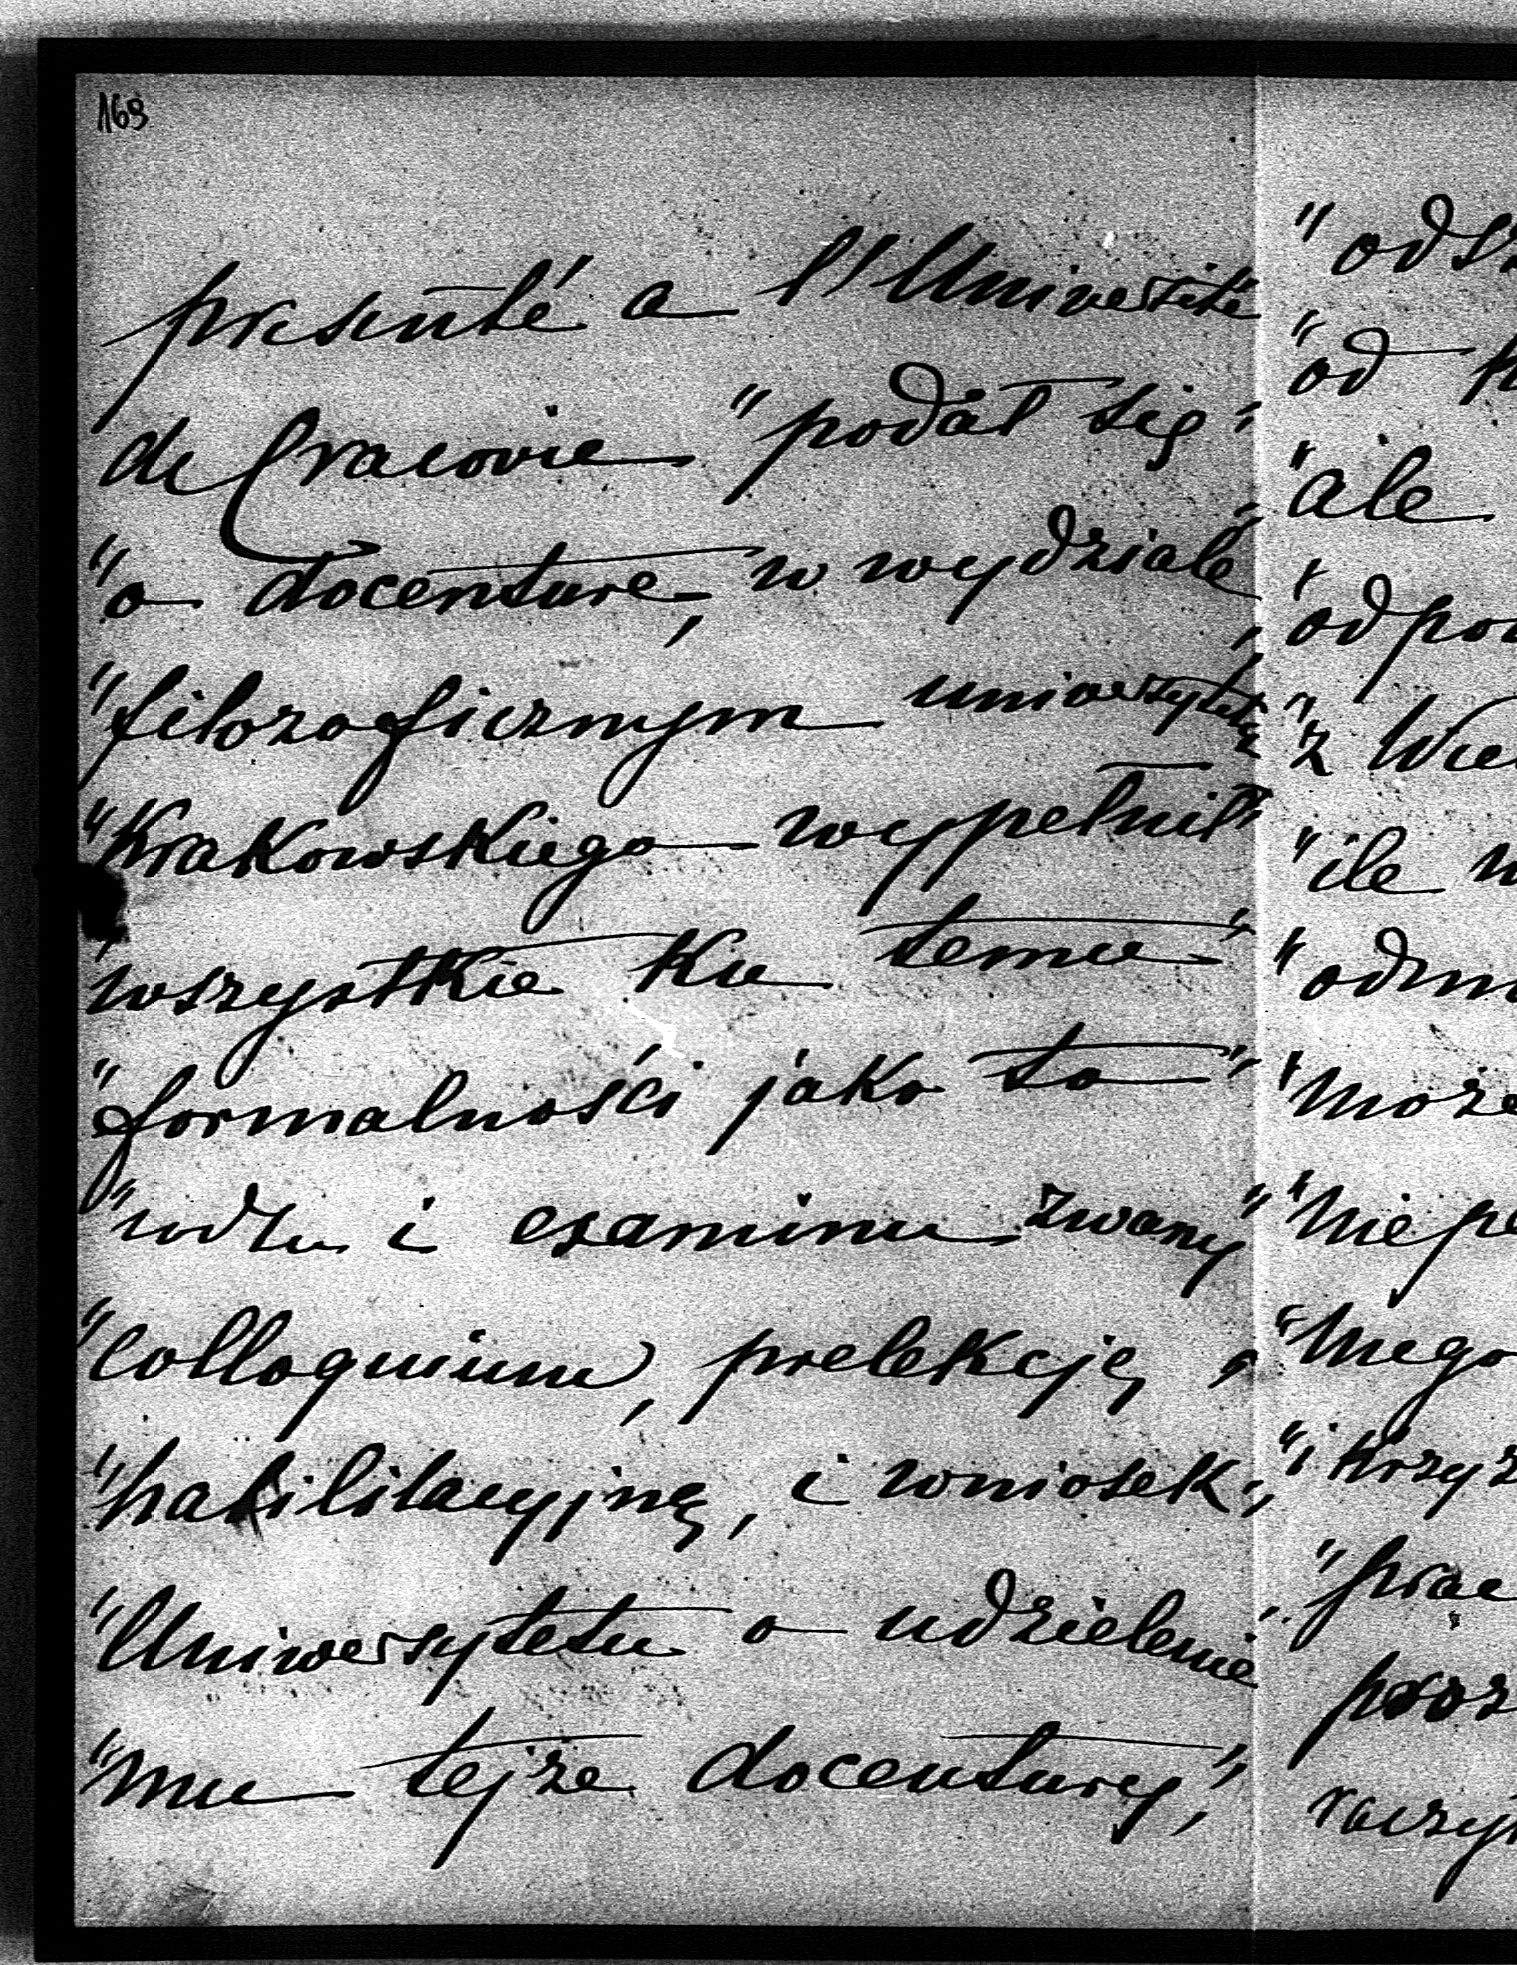 169
presenté a l'Université
de Cracovie "podał się"
"o docenturę, w wydziale"
"filozoficznym uniwersytetu
"Krakowskiego wypełnił"
"wszystkie ku temu"
"formalności jako to"
"rodzu i examinu zwany"
"Colloquium, prelekcję"
"habilitacyjną, i wniosek"
"Uniwersytetu o udzielenie"
"mu tejże docentury,"
"ods
"od
"ale
"odpo
"z Wie
"ile
"odm
"może
"nie
"niego
"i krzyż
"prac
proz
raczy